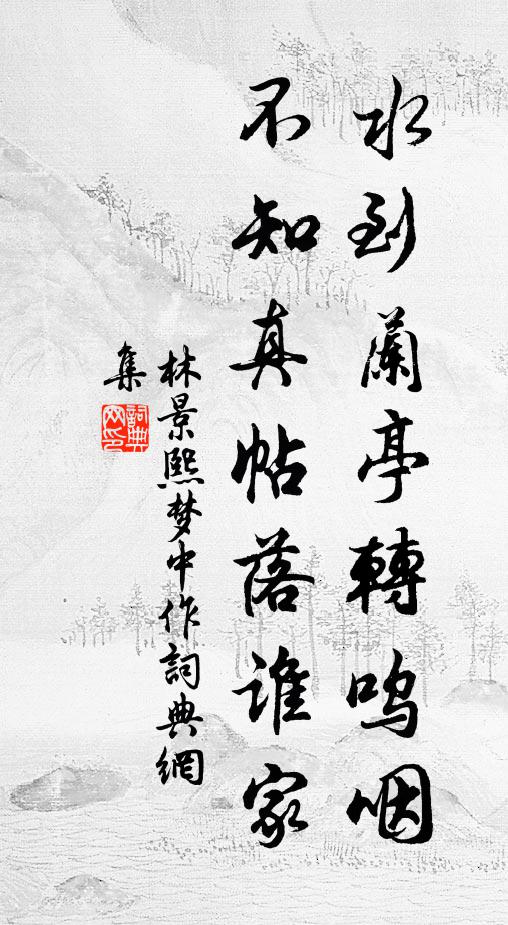 水到蘭亭轉嗚咽
不知真帖落誰家
林景熙梦中作詞典網
集
詞典
网印